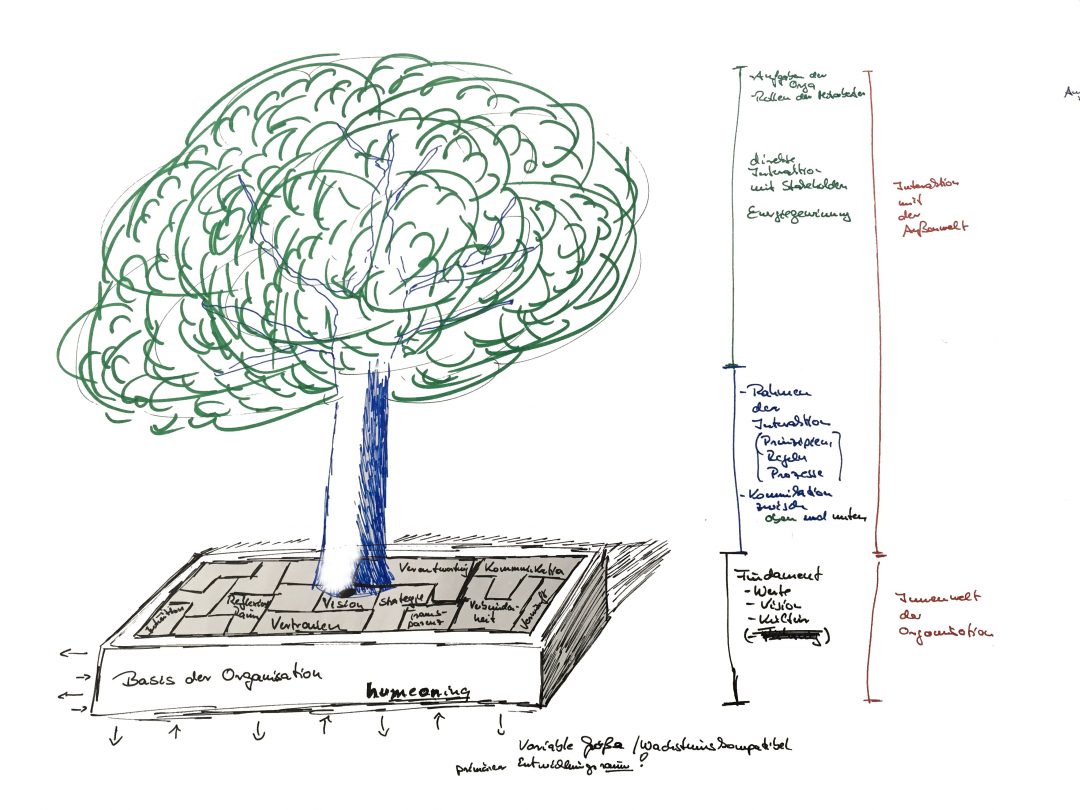 - Aufgaben der
Orga
- Rollen der Mitarbeiter
direkte
Interaktion
mit Stakeholdern
Energiegewinnung
Interaktion
mit
der
Außenwelt
- Rahmen
der
Interaktion
(Prinzipien,
Regeln
Prozesse)
- Kommunikation
zwisch
oben und unten
Fundament
- Werte
- Vision
- Kultur
Innenwelt
der
Organisation
Verantwortung
Kommunikation
Reflexion
Vision
Strategie
trans-
parenz
Verbunden-
heit
Vertrauen
Basis der Organisation
humeaning
Variable Größe / Wachstumskompatibel
primärer Entwicklungsraum!